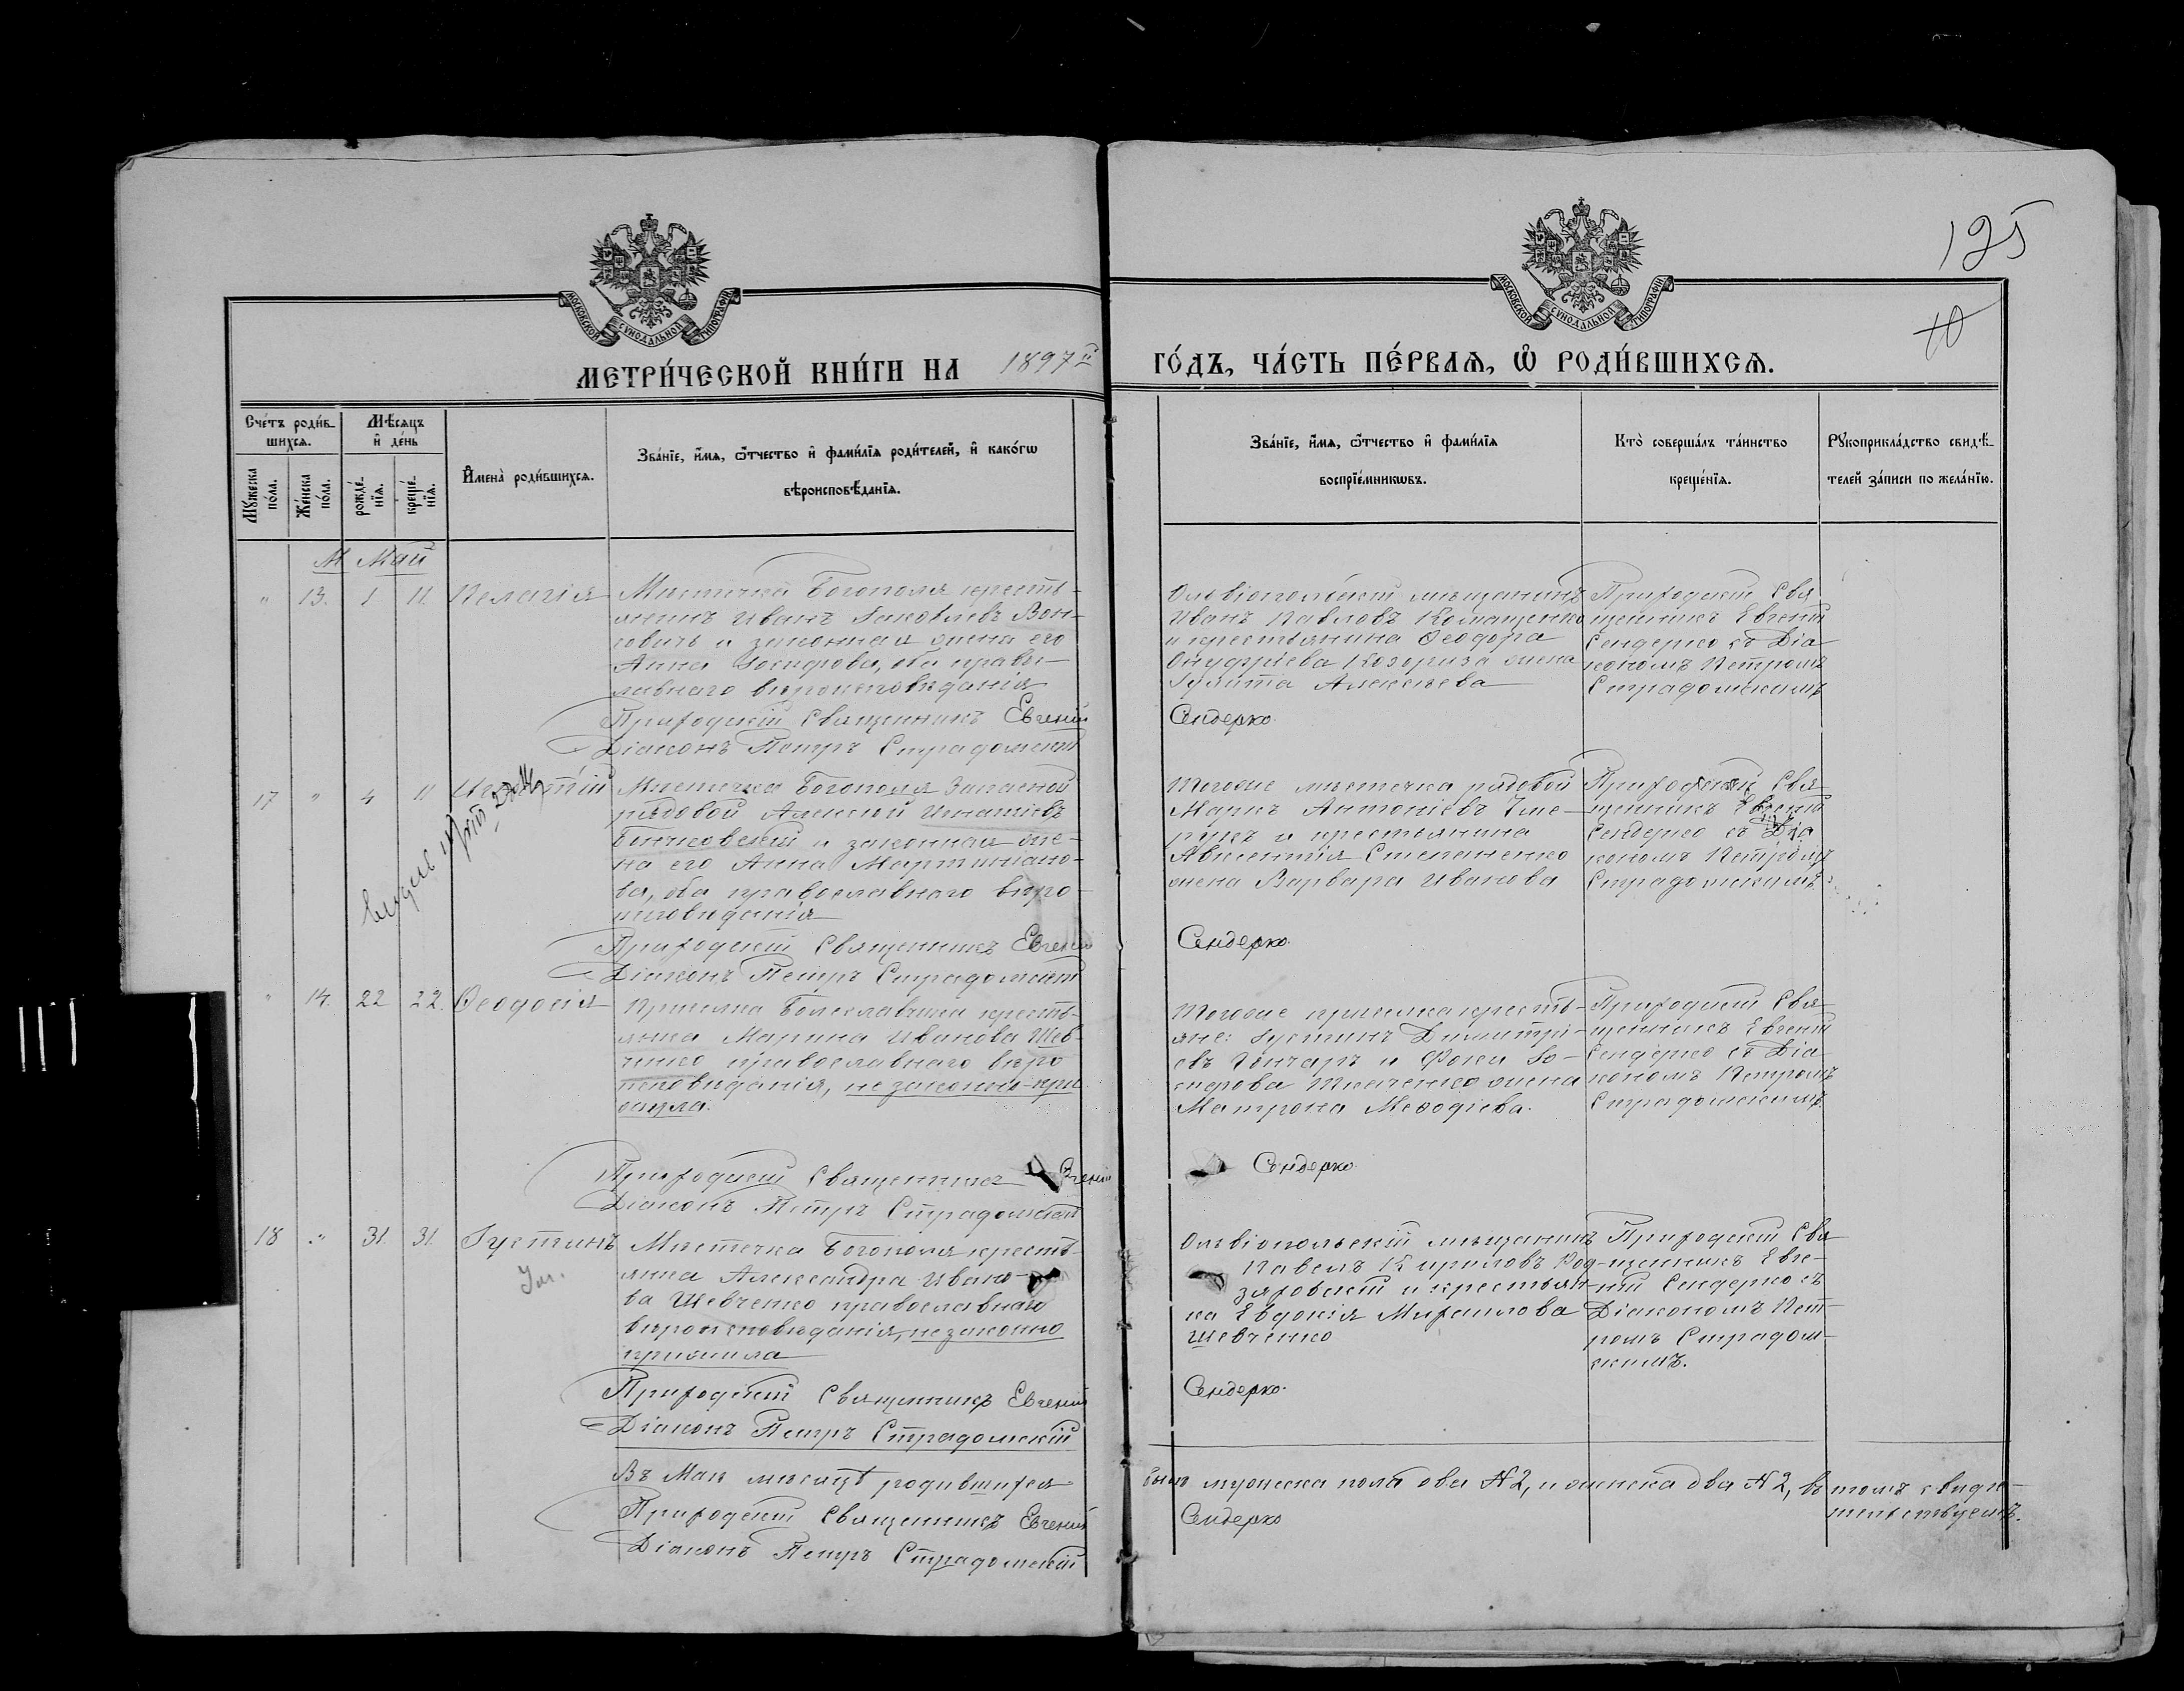 125
10
МОСКОВСКОЙ СѴНОДАЛЬНОЙ ТИПОГРАФІИ
МОСКОВСКОЙ СѴНОДАЛЬНОЙ ТИПОГРАФІИ
МЕТРИ́ЧЕСКОЙ КНИ́ГИ НА 1897й ГО́ДЪ, ЧА́СТЬ ПЕ́РВАЯ, Ѡ РОДИ́ВШИХСЯ.
Сче́тъ роди́в-
шихся.
Мꙋжеска по́ла.
Же́нска по́ла.
Мѣ́сяцъ
и де́нь
рожде́-
нїя.
креще́-
нїя.
Имена̀ роди́вшихся.
Зва́нїе, и́мя, ѻ́тчество и фами́лїя роди́телей, и како́гѡ
вѣроисповѣ́данїя.
Зва́нїе, и́мя, ѻ́тчество и фами́лїя
воспрїе́мникѡвъ.
Кто̀ соверша́лъ та́инство
креще́нїя.
Рꙋкоприкла́дство свидѣ́-
телей за́писи по жела́нїю.
М Май
" 13. 1 11. Пелагія
Мѣстечка Богополя кресть-
янинъ Иванъ Іаковлевъ Вон-
ковичъ и законная жена его
Анна Іосифова, оба право-
славнаго вѣроисповѣданія
Приходскій Священникъ Евгеній
Діаконъ Петръ Страдомскій
Ольвіопольскій мѣщанинъ
Иванъ Павловъ Комащенко
и крестьянина Ѳеодора
Онуфріева Козориза жена
Іулита Алексѣева
Сендерко.
Приходскій Свя-
щенникъ Евгеній
Сендерко съ Діа-
кономъ Петромъ
Страдомскимъ
17 " 4 11 Игнатій
Мѣстечка Богополя Запасной
рядовой Алексѣй Игнатіевъ
Бочковскій и законная же-
на его Анна Мартиніано-
ва, оба православнаго вѣро-
исповѣданія
Приходскій Священникъ Евгеній
Діаконъ Петръ Страдомскій
Тогоже мѣстечка рядовой
Маркъ Антоніевъ
и крестьянина
Авксентія Степаненко
жена Варвара Иванова
Сендерко.
Приходскій Свя-
щенникъ Евгеній
Сендерко съ Діа
кономъ Петромъ
Страдомскимъ
" 14. 22 22. Ѳеодосія
Приселка Болеславчика кресть-
янка Марина Иванова Шев-
ченко православнаго вѣро
исповѣданія, не законно-при
жила.
Приходскій Священникъ Евгеній
Діаконъ Петръ Страдомскій
Тогоже приселка кресть-
яне: Іустинъ Димитрі-
евъ Гончаръ и Фоки Іо-
сифова Ткаченко жена
Матрона Меѳодіева.
Сендерко.
Приходскій Свя-
щенникъ Евгеній
Сендерко съ Діа
кономъ Петромъ
Страдомскимъ.
18 " 31. 31. Іустинъ
Ум.
Мѣстечка Богополя кресть-
янка Александра Ивано-
ва Шевченко православнаго
вѣроисповѣданія, незаконно
прижила
Приходскій Священникъ Евгеній
Діаконъ Петръ Страдомскій
Ольвіопольскій мѣщанинъ
Павелъ Кириловъ Род-
зяховскій и крестьян-
ка Евдокія Михаилова
Шевченко
Сендерко.
Приходскій Свя
щенникъ Евге-
ній Сендерко съ
Діакономъ Пет-
ромъ Страдом-
скимъ.
Въ Маѣ мѣсяцѣ родившихся было мужеска пола два № 2, и женска два № 2, въ томъ свидѣ-
тельствуемъ.
Приходскій Священникъ Евгеній Сендерко
Діаконъ Петръ Страдомскій